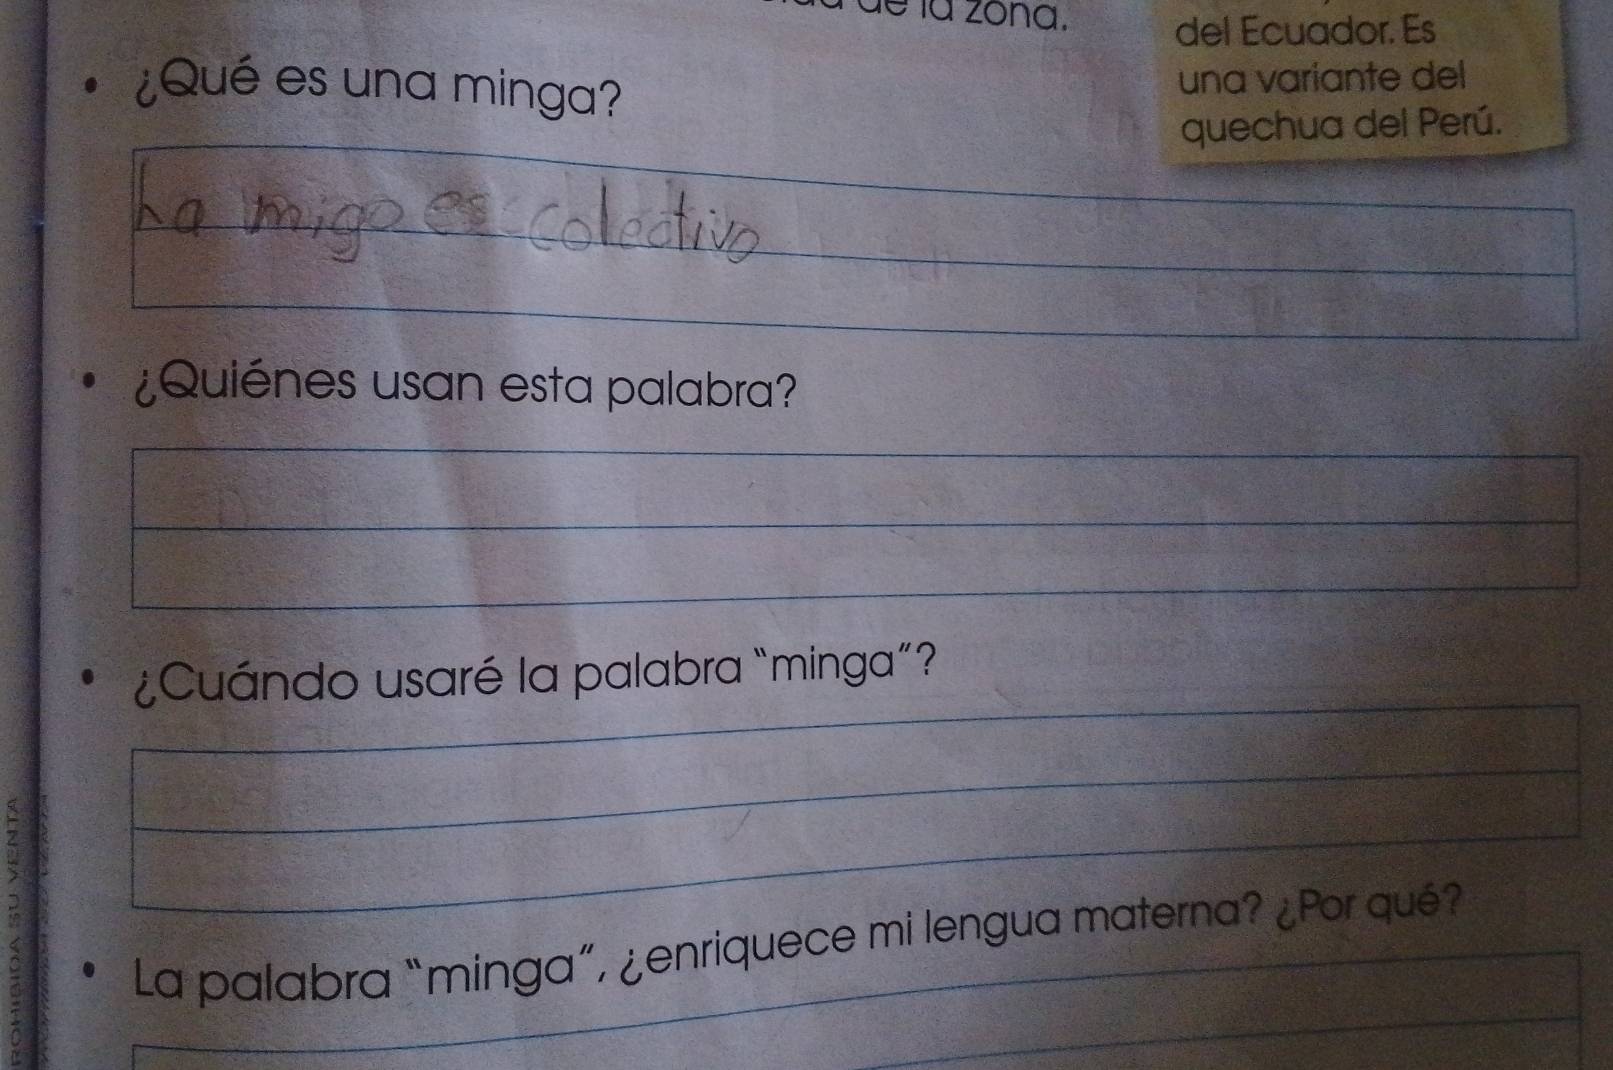 de la zona.
del Ecuador. Es
una variante del
quechua del Perú.
• ¿Qué es una minga?
La migo es colectivo
• ¿Quiénes usan esta palabra?
• ¿Cuándo usaré la palabra “minga”?
• La palabra “minga”, ¿enriquece mi lengua materna? ¿Por qué?
PROHIBIDA SU VENTA